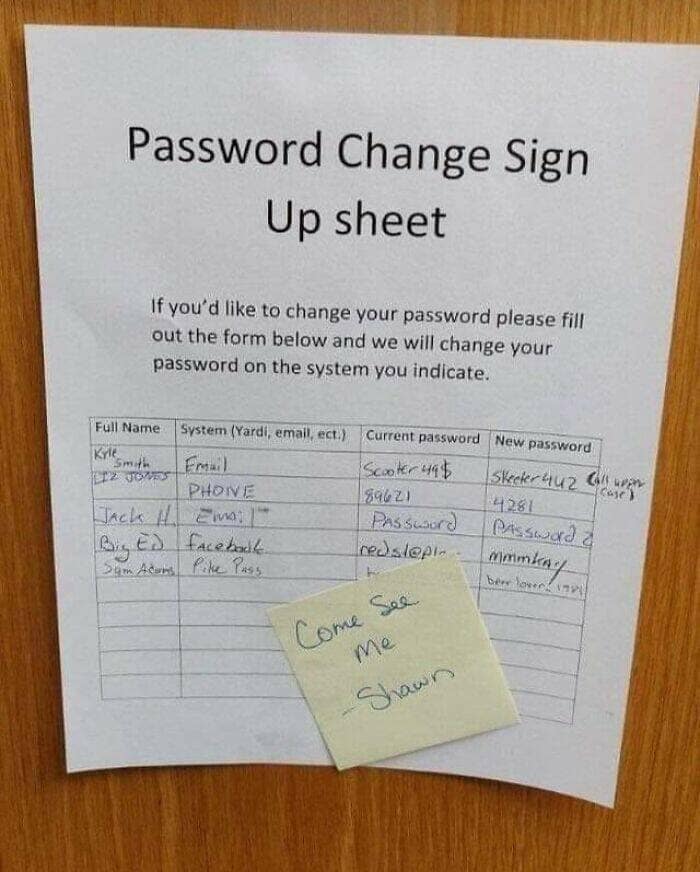 Password Change Sign
Up sheet
If you'd like to change your password please fill
out the form below and we will change your
password on the system you indicate.
Full Name System (Yardi, email, ect.) Current password New password
Kyle Smith Email Scooter49$ Skeeter4U2 (all upper case)
LIZ JONES PHONE 89621 4281
Jack H. Email Password PASSword 2
Big Ed facebook mmmkay
Sam Adams Pike Pass beer lover!
Come See
Me
- Shawn